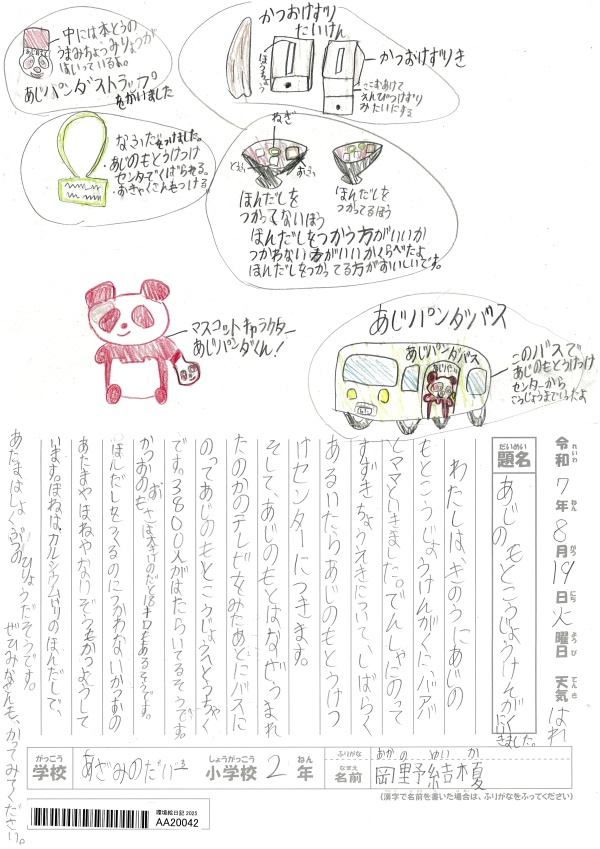 中には本とうの
うまみちょうみりょうが
はいっているよ。
あじパンダストラップ
をかいました
かつおけずり
たいけん
ほんもの
かつおけずりき
ここをあけて
えんぴつけずり
みたいにする
なふだをつけました。
・あじのもとうけつけ
センタでくばられる。
・おきゃくさんもつける
ねぎ
とうふ
おふ
ほんだしを
つかってないほう
ほんだしを
つかってるほう
ほんだしをつかう方がいいか
つかわない方がいいかくらべたよ
ほんだしをつかってる方がおいしいです。
マスコットキャラクター
あじパンダくん!
あじパンダバス
あじパンダバス
あじパンダ
このバスで
あじのもとうけつけ
センターから
こうじょうまでいったよ
令和7年8月19日火曜日 天気はれ
れいわ ねん がつ にち ようび てんき
だいめい
題名
あじのもとこうじょうけんがくにいきました。
わたしは、きのうにあじの
もとこうじょうけんがくにバアバ
とママといきました。でんしゃにのって
すずきちょうえきについて、しばらく
あるいたらあじのもとうけつ
けセンターにつきます。
そして、あじのもとはなぜうまれ
たのかのテレビをみたあとにバスに
のってあじのもとこうじょうへとうちゃく
です。3800人がはたらいてるそうです。
かつおのおもさは大きいのだと18キロもあるそうです。
ほんだしをつくるのにつかわないかつおの
あたまやほねやないぞうもかつようして
います。ほねは、カルシウム入りのほんだしで、
あたまはしょくぶつのひりょうだそうです。
ぜひみなさんも、かってみてください。
がっこう
学校
あざみのだい二
しょうがっこう
小学校
2
ねん
年
ふりがな
おかの ゆいか
なまえ
名前
岡野結榎
(漢字で名前を書いた場合は、ふりがなをふってください)
環境絵日記 2025
AA20042